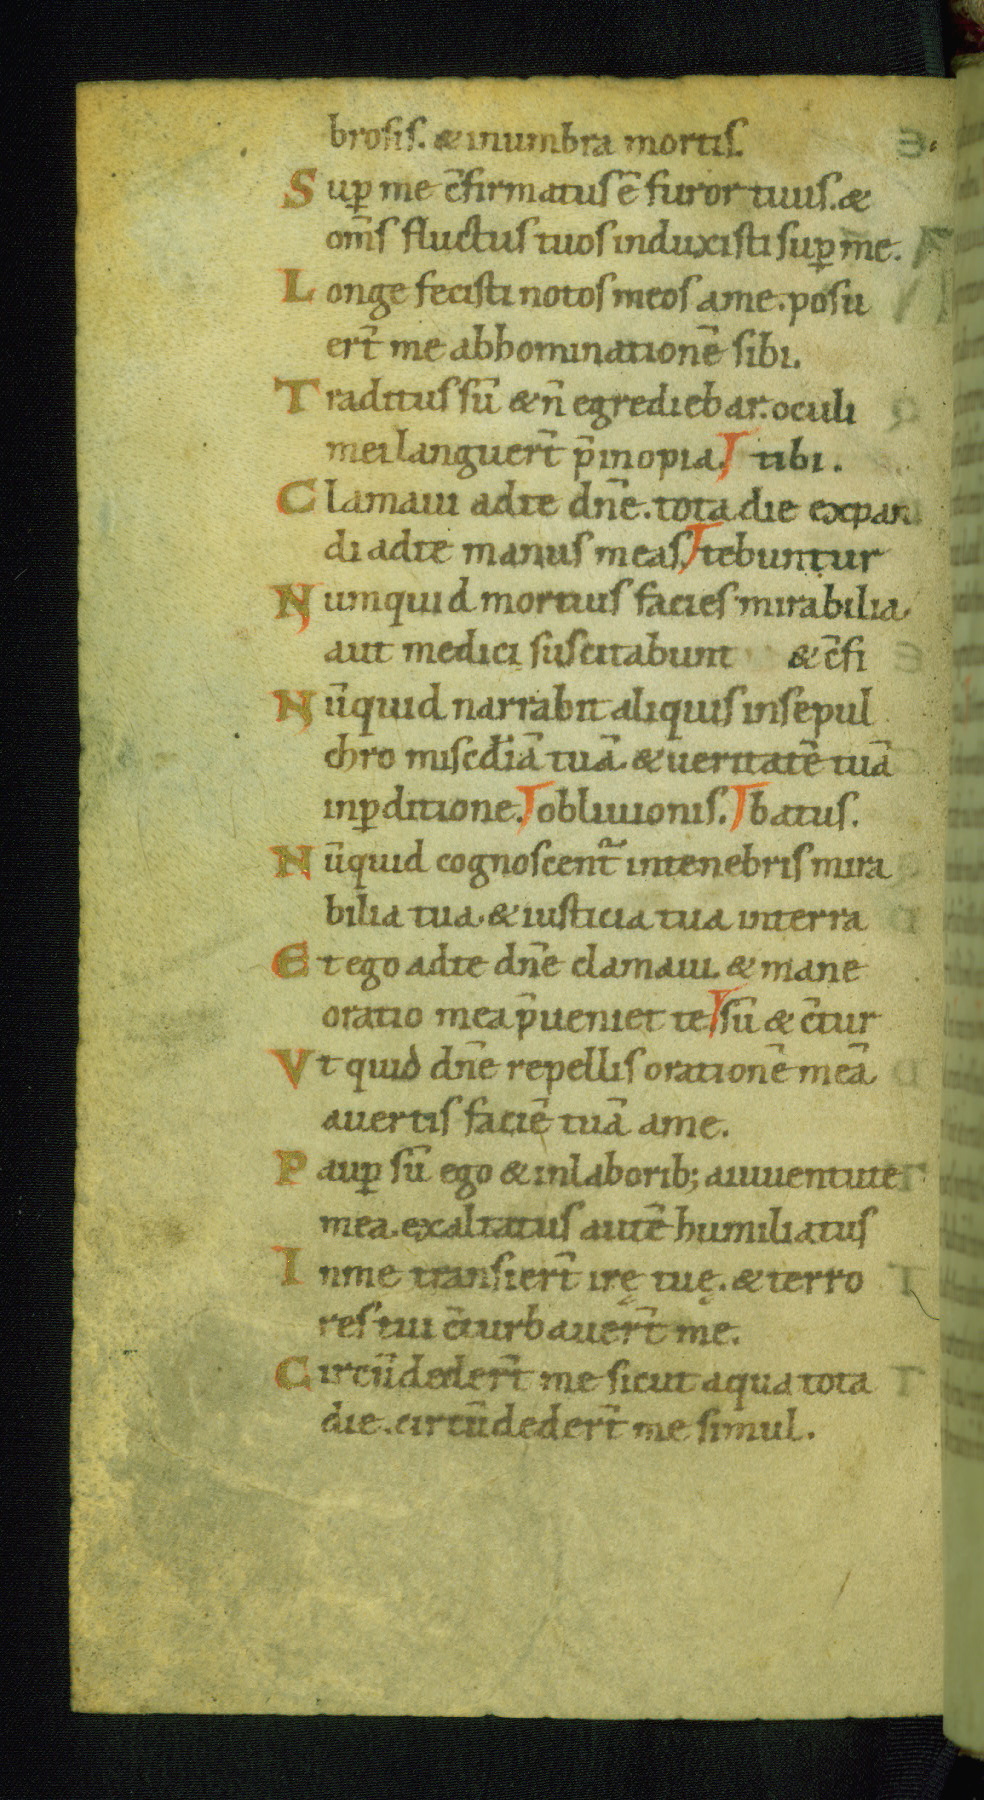 brosis. & inumbra mortis.
Sup̲ me c̄firmatus ē furor tuus. &
om̄s fluctus tuos induxisti sup̲ me.
Longe fecisti notos meos ame. posu
er̄t me abhominationē sibi.
Traditus sū & n̄ egrediebar. oculi
mei languer̄t p̄inopia. tibi.
Clamaui adte dn̄e. tota die expan
di adte manus meas tebuntur
Numquid mortuis facies mirabilia
aut medici suscitabunt & c̄fi
Nūquid narrabit aliquis insepul
chro misc̄diā tuā. & ueritatē tuā
inp̲ditione. obliuionis. batus.
Nūquid cognoscent̄ intenebris mira
bilia tua. & iusticia tua interra
Et ego adte dn̄e clamaui. & mane
oratio mea p̄ueniet te sū & c̄tur
Vt quid dn̄e repellis orationē meā
auertis faciē tuā ame.
Paup̲ sū ego & inlaborib; aiuuentute
mea. exaltatus autē humiliatus
Inme transier̄t irę tuę. & terro
res tui c̄turbauer̄t me.
Circūdeder̄t me sicut aqua tota
die. circūdeder̄t me simul.